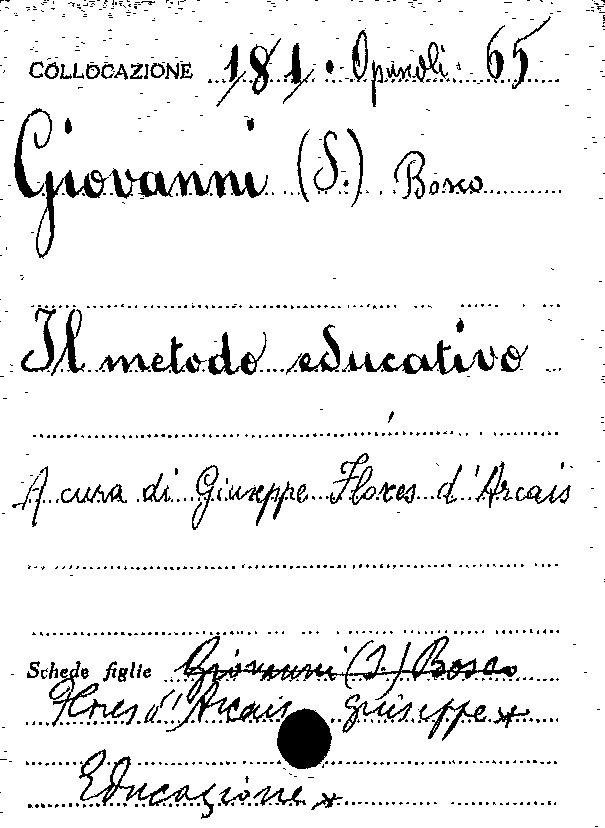 COLLOCAZIONE 181. Opuscoli. 65
Giovanni (S.) Bosco
Il metodo educativo
A cura di Giuseppe Flores d'Arcais
Schede figlie Giovanni (S.) Bosco
Flores d'Arcais Giuseppe *
Educazione *